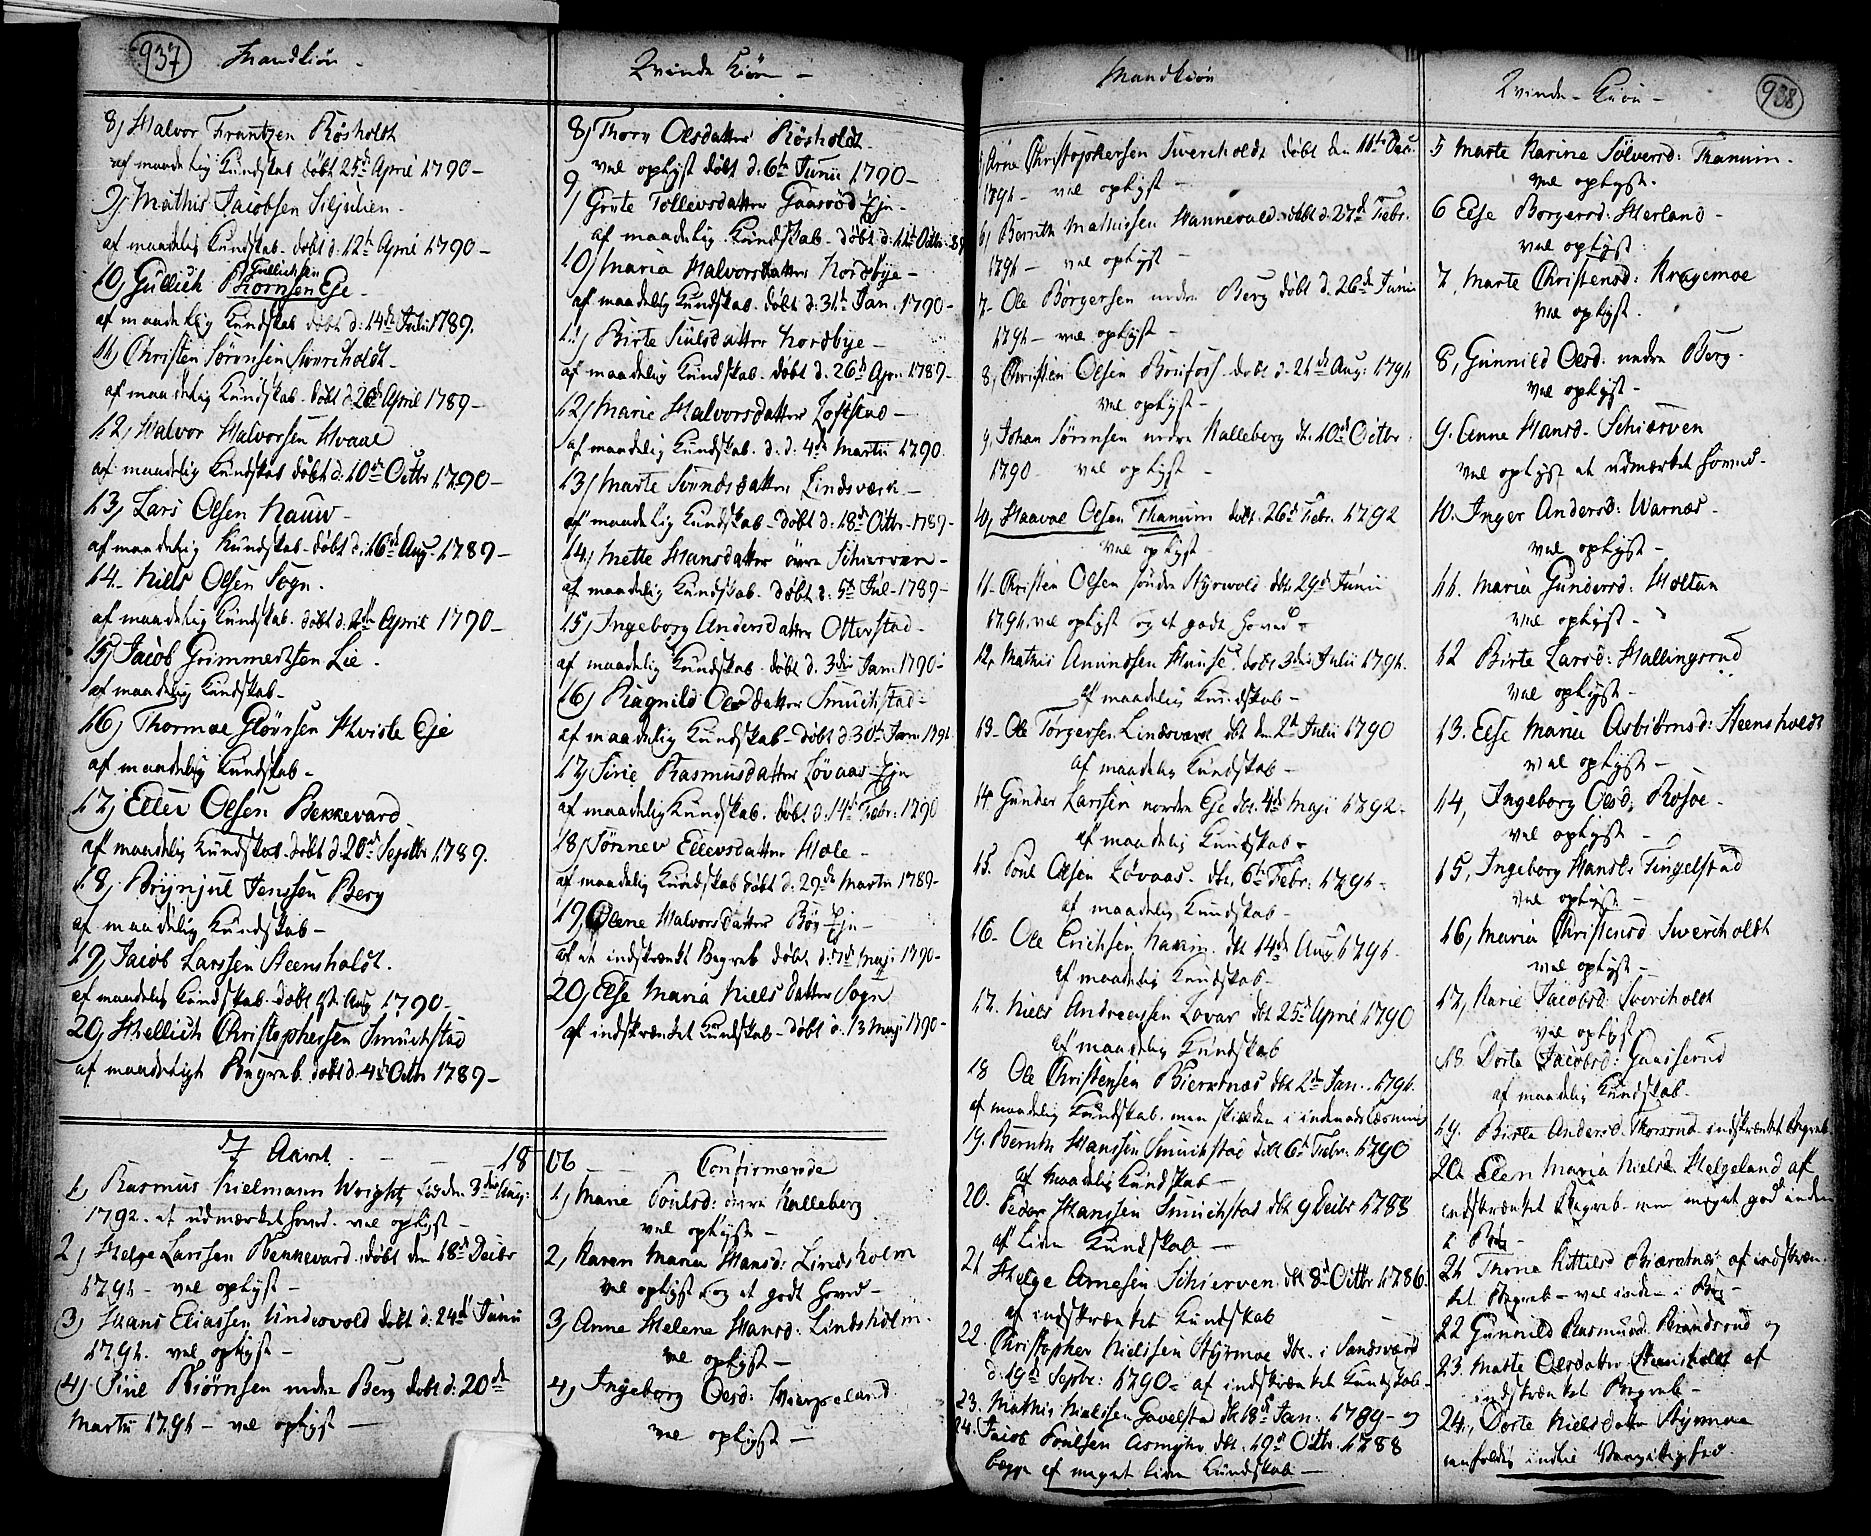 937 Mandkiön -
8, Halvor Frantzen Rösholdt
af maadelig Kundskab döbt 25d April 1790 -
9, Mathis Jacobsen Siljulien -
af maadelig Kundskab - döbt d. 12t April 1790 -
Gullichsen
10, Gullich Biörnsen Eje -
af maadelig Kundskab döbt d: 14de Julii 1789.
11, Christen Sörensen Sverholdt -
af maadelig Kundskab - döbt d. 26d April 1789 -
12, Halvor Halvorsen Hvaal
af maadelig Kundskab döbt d: 10d Octbr 1790 -
13, Lars Olsen Nauw -
af maadelig Kundskab - döbt d: 16d Aug: 1789 -
14 - Niels Olsen Sogn -
af maadelig Kundskab - döbt d: April 1790 -
15, Jacob Grimmertsen Lie -
af maadelig Kundskab -
16, Thormoe Glöersen Hviste Eje
af maadelig Kundskab -
17, Ellev Olsen Bekkevard -
af maadelig Kundskab - döbt d: 20d Septbr 1789.
18, Brÿnjul Jenssen Berg
af maadelig Kundskab -
19, Jacob Larssen Steensholdt.
af maadelig Kundskab - döbt Aug 1790 -
20, Hellich Christophersen Smuchstad
af maadeligt Begreb. döbt d. 4d Octbr 1789 -
Aaret - - 18
1, Rasmus Kielmann Wright, föd den 3die Aug:
1792. et udmærket hoved - vel oplyst -
2, Helge Larssen Bennevard. döbt den 18d Decbr
1791 - vel oplyst -
3, Hans Eliassen Undervold döbt d: 24d Junii
1791. vel oplyst -
4, Siul Biörnsen nedre Berg döbt d: 20de
Martii 1791 - vel oplyst -
Qvinde Kiön -
8, Thorn Olsdatter Rösholdt -
vel oplyst döbt d: 6te Junii 1790 -
9, Grete Tollevsdatter Gaaseröd Eje -
af maadelig Kundskab - döbt d: 11t Octbr: 89
10, Maria Halvorsdatter Nordbye -
af maadelig Kundskab - döbt d: 31t Jan: 1790 -
11, Birte Siulsdatter Nordbye -
af maadelig Kundskab - döbt d. 26d Apr: 1789 -
12, Marie Halvorsdatter Loftstad -
af maadelig Kundskab - d. d. 4de Martii 1790
13, Marte Svendsdatter Lindsværk -
af maadelig Kundskab - döbt d: 18d Octbr - 1789 -
14, Mette Hansdatter övre Schierven -
af maadelig Kundskab - döbt d. 5t Jul - 1789 -
15, Ingeborg Andersdatter Otterstad -
af maadelig Kundskab - döbt d. 3die Jan: 1790 -
16, Ragnild Olesdatter Smuchstad -
af maadelig Kundskab - döbt d: 30te Jan: 1791
17, Sirie Rasmusdatter Lövaas Eje
af maadelig Kundskab - döbt d: 14d Febr: 1790
18, Sönnev Ellevsdatter Hole -
af maadelig Kundskab döbt d: 29de Martii 1789 -
19, Olene Halvorsdatter Böe Eje -
af et indskrænket Begreb döbt d: Maji 1790 -
20, Else Maria Nielsdatter Sogn
af indskrænket Kundskab - döbt d. 13 Maji 1790 -
06 - Confirmerede
1, Marie Poulsd: övre Kalleberg
vel oplyst -
2, Karen Maria Hansd: Lindsholm
vel oplyst og et godt hoved -
3, Anne Helene Hansd: Lindsholm -
vel oplyst -
4, Ingeborg Olsd: Hvirgseland
vel oplyst -
Mandkiön
5, Arne Christophersen Sverholdt döbt den 11te Decbr
1791 - vel oplyst -
6, Berntt Mathissen Hannevold döbt d. 27d Febr:
1791 - vel oplyst -
7 - Ole Börgersen nedre Berg döbt d. 26de Junii
1791 - vel oplyst -
8, Christen Olsen Brufos döbt d. 21de Aug: 1791
vel oplyst -
9. Johan Sörensen nedre Kalleberg dt. 10d Octbr:
1790 - vel oplyst -
10, Haavae Olsen Thanum döbt: 26d Febr: 1792
vel oplyst -
11 - Christen Olsen söndre Styrvold dbt 29de Junii
1791. vel oplyst og et godt hoved -
12, Mathis Amundsen Hause, döbt 3die Julii 1791.
af maadelig Kundskab -
13 - Ole Torgersen Lindsværk dbt den 2d Julii 1790
af maadelig Kundskab -
14. Gunder Larsen norden Eje dbt. 4de Maji 1792 -
af maadelig Kundskab -
15. Poul Olsen Lövaas - dbt. 6te Febr: 1791 -
af maadelig Kundskab -
16 - Ole Erichsen dbt 14de Aug 1791 -
af maadelig Kundskab -
17. Niels Andreassen Lovar dbt 25d April 1790
af maadelig Kundskab
18 Ole Christensen Bierætnæs dbt 2d Jan: 1791.
af maadelig Kundskab - men skikken i indenadslæsning
19. Berntt Hanssen Smuchstad dbt 6te Febr: 1790
af maadelig Kundskab -
20. Peder Hanssen Smuchstad dbt 9 Decbr 1788
af liden Kundskab -
21 Helge Arnesen Schierven dbt 8d Octbr 1786
af indskrænket Kundskab
22. Christopher Nielsen Styrmoe dbt. i Sandsværd
d. 19de Septbr: 1790 - af indskrænket Kundskab
23. Mathis Nielsen Gavelstad dbt 18d Jan: 1789 - og
24. Jacob Poulsen Asmyhr dbt. 19d Octbr 1788
begge af meget liden Kundskab -
Qvinde - Kiön - 938
5 Marte Karine Sölversd: Thanum -
vel oplyst.
6 Else Borgersd: Herland -
vel oplyst:
7, Marte Christensd: Kragemoe
vel oplyst.
8, Gunnild Olsd: nedre Berg -
vel oplyst -
9. Anne Hansd - Schierven
vel oplyst et udmærket hoved -
10. Inger Andersd: Warnæs -
vel oplyst -
11. Maria Gundersd: Holtan
vel oplyst -
12 Birte Larsd: Hallingsrud
vel oplyst -
13. Else Maria Asbiörnsd: Steensholdt
vel oplyst -
14, Ingeborg Olsd: Rosoe -
vel oplyst -
15, Ingeborg Hansd: Tingelstad
vel oplyst -
16, Maria Christensd Sverholdt
vel oplyst -
17, Karie Jacobsd: Sverholdt
vel oplyst
18 Dorte Jacobsd: Gaaserud
af maadelig Kundskab.
19. Birte Andersd. Thorsrud indskrænket Begreb
20. Elen Maria Nielsd. Helgeland af
indskrænket Begreb - men meget god inden
i Bog -
21 Thone Kittilsd Bierætnæs af indskræn-
ket Begreb - vel inden i Bog -
22 Gunnild Rasmusd: Brandsrud og
23. Matte Olesdatter Steensholdt af
indskrænket Begreb -
24, Dorte Nielsdatter Styrmoe
indtil